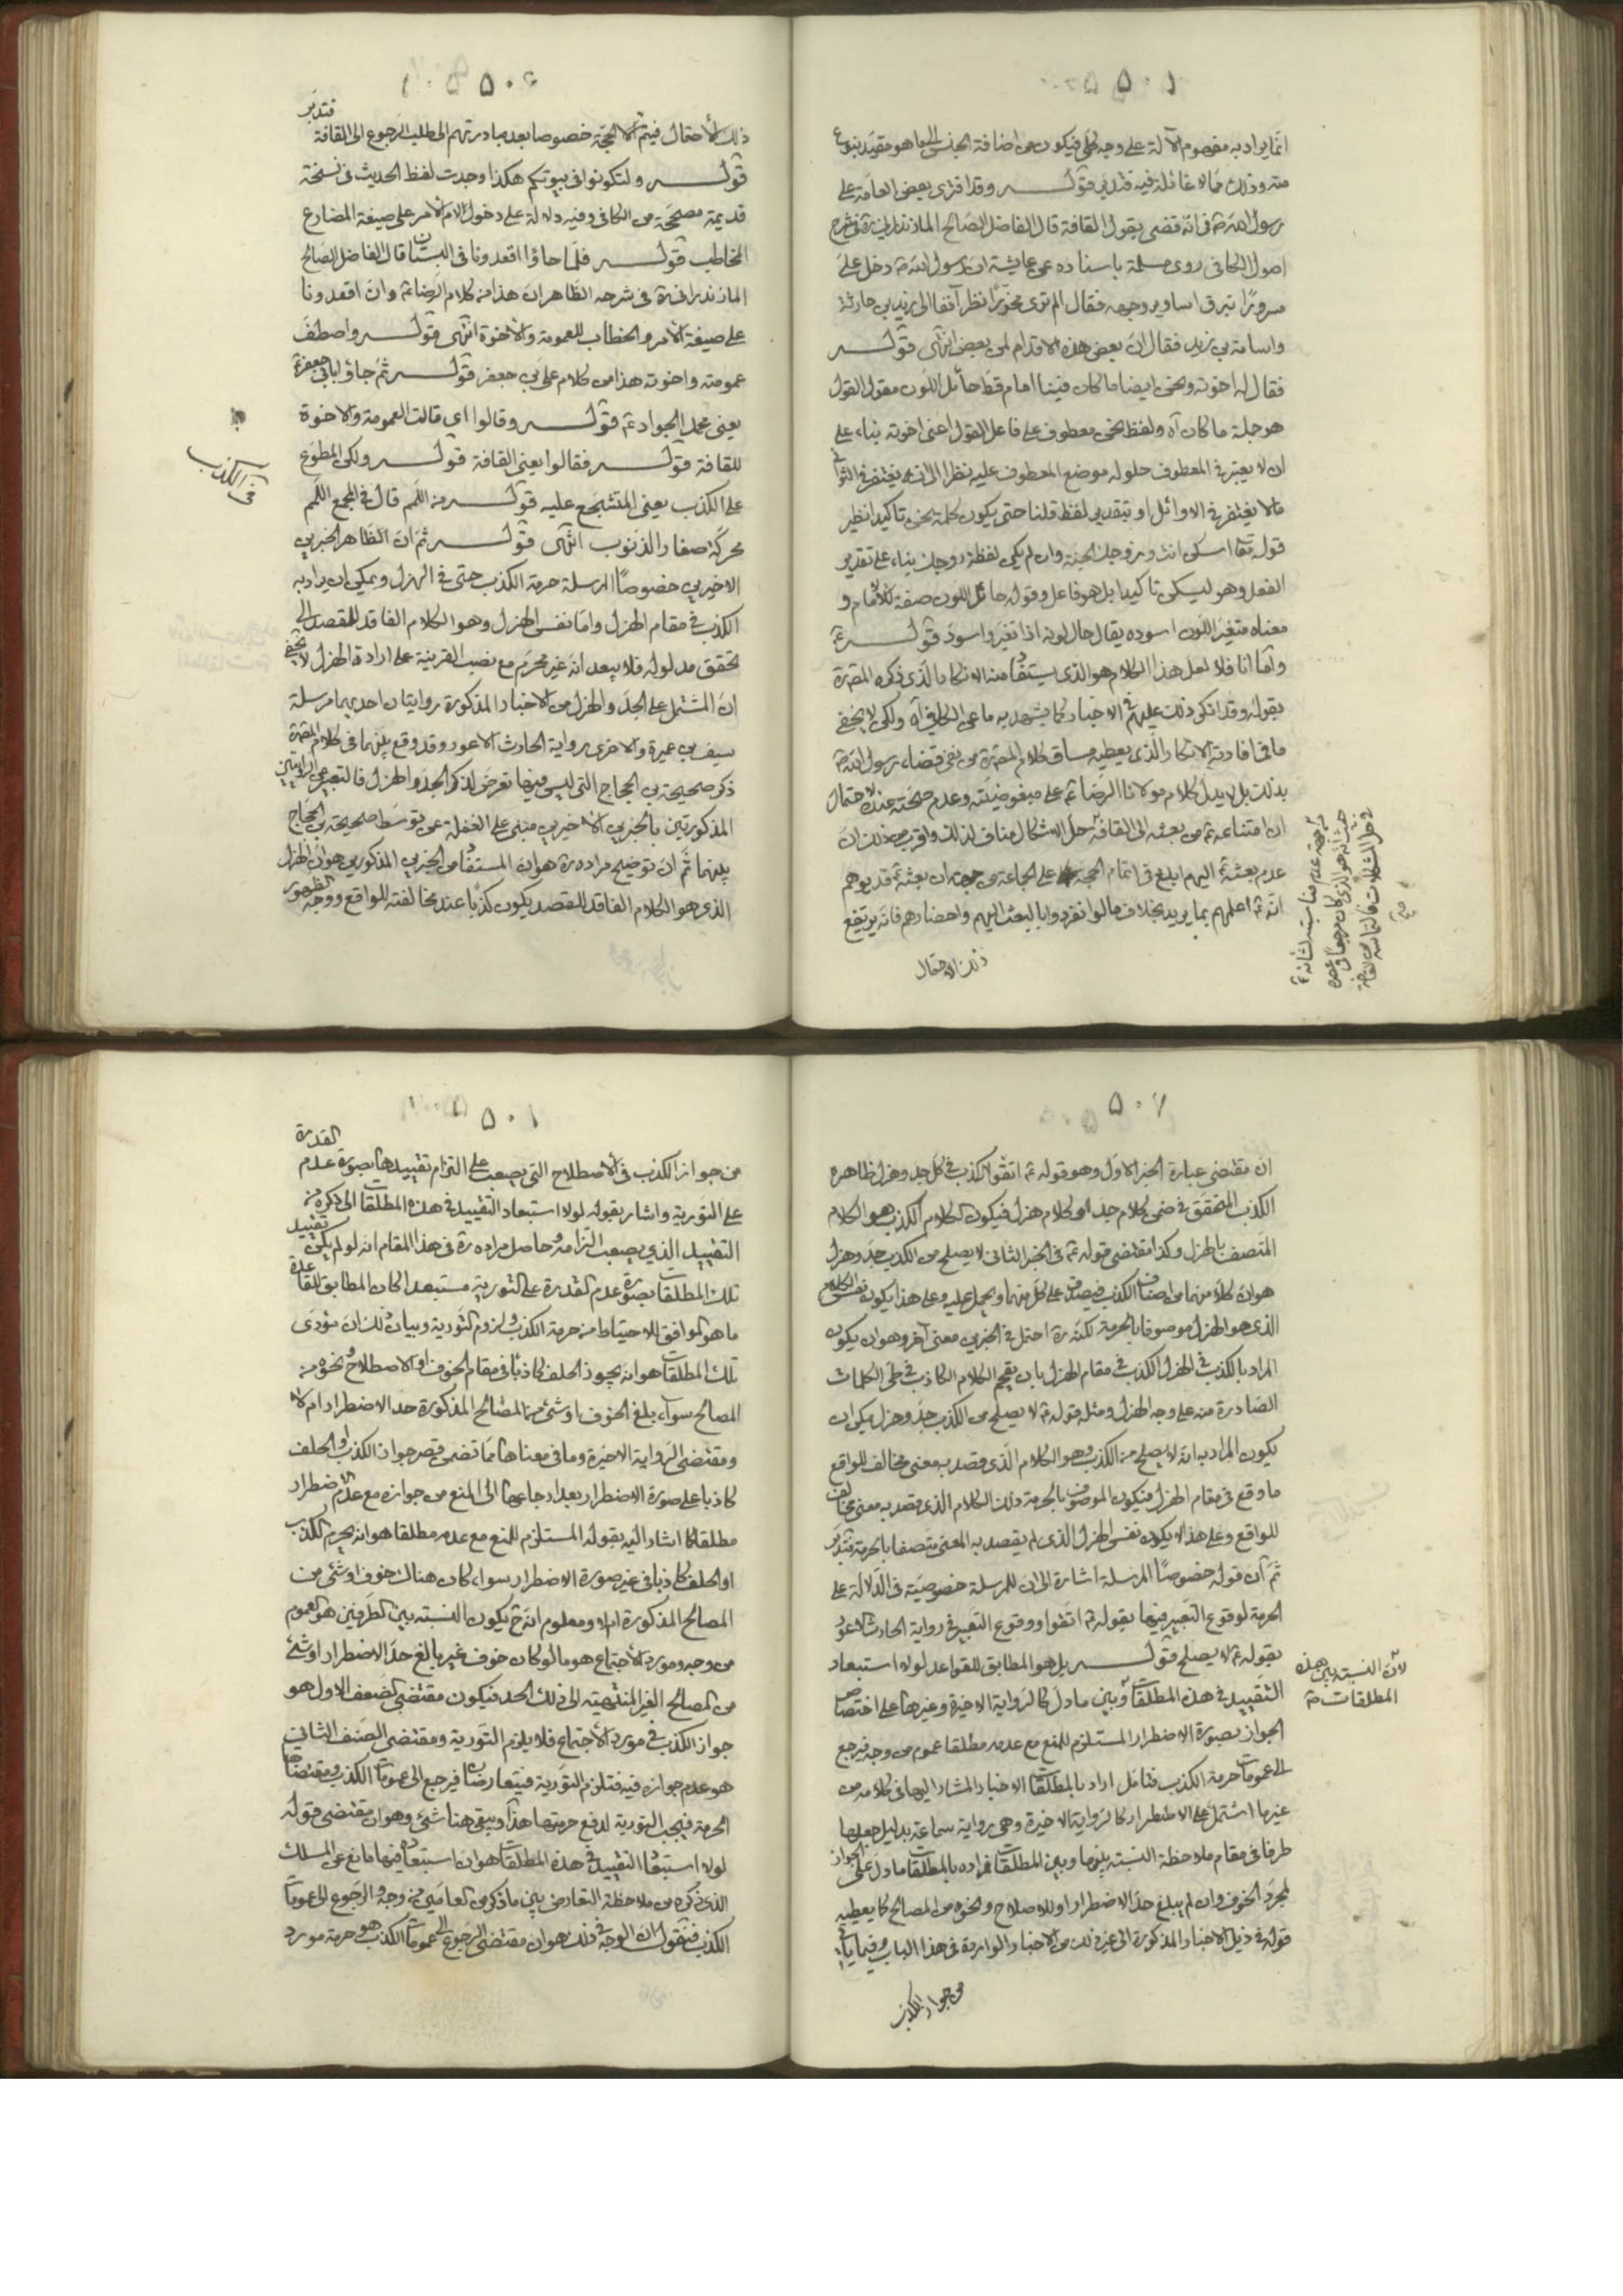 ٥٠٥
انما يراد به مفهوم الآلة على وجه كلي فيكون من اضافة الجنس الى ما هو مقيد بنوع
منه وذلك مما لا غائلة فيه فتدبر قوله وقد افترى بعض العامة على
رسول الله ص في انه قضى بقول القافة قال الفاضل الصالح المازندراني ره في شرح
اصول الكافي روى مسلم باسناده عن عايشة ان رسول الله ص دخل علي
مسرورا تبرق اسارير وجهه فقال الم ترى مجززا نظر آنفا الى زيد بن حارثة
واسامة بن زيد فقال ان بعض هذه الاقدام لمن بعض انتهى قوله
فقال له اخوته ونحن ايضا ما كان فينا امام قط حائل اللون مقول القول
هو جملة ما كان آه ولفظ نحن معطوف على فاعل القول اعني اخوته بناء على
ان لا يعتبر في المعطوف حلوله موضع المعطوف عليه نظرا الى انه يغتفر في الثواني
ما لا يغتفر في الاوائل او بتقدير لفظ قلنا حتى يكون كلمة نحن تاكيدا نظير
قوله تعالى اسكن انت وزوجك الجنة وان لم يكن لفظة زوجك بناء على تقدير
الفعل وهو ليسكن تاكيدا بل هو فاعل وقوله حائل اللون صفة للامام و
معناه متغير اللون اسوده يقال حال لونه اذا تغير واسود قوله ع
واما انا فلا لعل هذا الكلام هو الذي يستفاد منه الانكار الذي ذكره المص ره
بقوله وقد انكر ذلك عليهم في الاخبار كما يشهد به ما عن الكافي آه ولكن لا يخفى
ما في افادته الانكار الذي يعطيه مساق كلام المص ره من نفى قضاء رسول الله ص
بذلك بل لا يدل كلام مولانا الرضا ع على مبغوضيته وعدم صحته عنده لاحتمال
ان امتناعه ع من بعثه الى القافة حل الاشكال مناف لذلك واقرب من ذلك ان
عدم بعثه ع اليهم ابلغ في اتمام الحجة على الجماعة من جهة ان بعثه ع قد يوهم
انه ع اعلمهم بما يريد بخلاف ما لو انفردوا بالبعث اليهم واحضارهم فانه يرتفع
ذلك الاحتمال
من جهة عدم مناسبته لشانه ع
حيث انه هو الذي كان مرجعا في عصره
في حل المشكلات فالتماسه من القافة
٥٠٦
ذلك الاحتمال فيتم الحجة خصوصا بعد مبادرتهم الى طلب الرجوع الى القافة فتدبر
قوله ولتكونوا في بيوتكم هكذا وجدت لفظ الحديث في نسخة
قديمة مصححة من الكافي وفيه دلالة على دخول لام الامر على صيغة المضارع
المخاطب قوله فلما جاؤا اقعدونا في البستان قال الفاضل الصالح
المازندراني ره في شرحه الظاهر ان هذا من كلام الرضا ع وان اقعدونا
على صيغة الامر والخطاب للعمومة والاخوة انتهى قوله واصطف
عمومته واخوته هذا من كلام علي بن جعفر قوله ثم جاؤا بابي جعفر ع
يعني محمد الجواد ع قوله وقالوا اي قالت العمومة والاخوة
للقافة قوله فقالوا يعني القافة قوله ولكن المطوع
على الكذب يعني المتشجع عليه قوله من اللمم قال في المجمع اللمم
محركة صغار الذنوب انتهى قوله ثم ان الظاهر الخبرين
الاخيرين خصوصا المرسلة حرمة الكذب حتى في الهزل ويمكن ان يراد به
الكذب في مقام الهزل واما نفس الهزل وهو الكلام الفاقد للقصد الى
تحقق مدلوله فلا يبعد انه غير محرم مع نصب القرينة على ارادة الهزل لا يخفى
ان المشتمل على الجد والهزل من الاخبار المذكورة روايتان احديهما مرسلة
سيف بن عميرة والاخرى رواية الحارث الاعور وقد وقع بينهما في كلام المص ره
ذكر صحيحة بن الحجاج التي ليس فيها تعرض لذكر الجد والهزل فالتعبير عن الروايتين
المذكورتين بالخبرين الاخيرين مبني على الغفلة عن توسط صحيحة بن الحجاج
بينهما ثم ان توضيح مراده ره هو ان المستفاد من الخبرين المذكورين هو ان الهزل
الذي هو الكلام الفاقد للقصد يكون كذبا عند مخالفته للواقع ووجه الظهور
في الكذب
٥٠٧
ان مقتضى عبارة الخبر الاول وهو قوله ع اتقوا الكذب في كل جد وهزل ظاهره
الكذب المتحقق في ضمن كلام جد او كلام هزل فيكون الكلام الكذب هو الكلام
المتصف بالهزل وكذا مقتضى قوله ع في الخبر الثاني لا يصلح من الكذب جد وهزل
هو ان كلا منهما من اصناف الكذب فيصدق على كل منهما ويحمل عليه وعلى هذا يكون نفس الكلام
الذي هو الهزل موصوفا بالحرمة لكنه ره احتمل في الخبرين معنى آخر وهو ان يكون
المراد بالكذب في الهزل الكذب في مقام الهزل بان يقحم الكلام الكاذب في طي الكلمات
الصادرة منه على وجه الهزل ومثله قوله ع لا يصلح من الكذب جد وهزل يمكن ان
يكون المراد به انه لا يصلح من الكذب وهو الكلام الذي قصد به معنى مخالف للواقع
ما وقع في مقام الهزل فيكون الموصوف بالحرمة ذلك الكلام الذي قصد به معنى مخالف
للواقع وعلى هذا لا يكون نفس الهزل الذي لم يقصد به المعنى متصفا بالحرمة فتدبر
ثم ان قوله خصوصا المرسلة اشارة الى ان للمرسلة خصوصية في الدلالة على
الحرمة لوقوع التعبير فيها بقوله ع اتقوا ووقوع التعبير في رواية الحارث الاعور
بقوله ع لا يصلح قوله بل هو المطابق للقواعد لولا استبعاد
التقييد في هذه المطلقات وبين ما دل كالرواية الاخيرة وغيرها على اختصاص
الجواز بصورة الاضطرار المستلزم للمنع مع عدمه مطلقا عموم من وجه فيرجع
الى عمومات حرمة الكذب فتامل اراد بالمطلقات الاخبار المشار اليها في كلامه من
غير ما اشتمل على الاضطرار كالرواية الاخيرة وهي رواية سماعة بدليل جعلها
طرفا في مقام ملاحظة النسبة بينها وبين المطلقات فمراده بالمطلقات ما دل على الجواز
لمجرد الخوف وان لم يبلغ حد الاضطرار او للاصلاح ونحوه من المصالح كما يعطيه
قوله في ذيل الاخبار المذكورة الى غير ذلك من الاخبار الواردة في هذا الباب وفيما ياتي
من جواز الكذب
لان النسبة بين هذه
المطلقات ص
٥٠٨
من جواز الكذب في الاصطلاح التي يصعب على التزام تقييدها بصورة عدم القدرة
على التورية واشار بقوله لولا استبعاد التقييد في هذه المطلقات الى ما ذكره من
التقييد الذي يصعب التزامه وحاصل مراده ره في هذا المقام انه لو لم يكن تقييد
تلك المطلقات بصورة عدم القدرة على التورية مستبعدا لكان المطابق للقاعدة
ما هو الموافق للاحتياط من حرمة الكذب ولزوم التورية وبيان ذلك ان مؤدى
تلك المطلقات هو انه يجوز الحلف كاذبا في مقام الخوف او الاصطلاح ونحوه من
المصالح سواء بلغ الخوف او شئ من المصالح المذكورة حد الاضطرار ام لا
ومقتضى الرواية الاخيرة وما في معناها مما تضمن قصر جواز الكذب او الحلف
كاذبا على صورة الاضطرار بعد ارجاعها الى المنع من جوازه مع عدم الاضطرار
مطلقا كما اشار اليه بقوله المستلزم للمنع مع عدمه مطلقا هو انه يحرم الكذب
او الحلف كاذبا في غير صورة الاضطرار سواء كان هناك خوف او شئ من
المصالح المذكورة ام لا ومعلوم انه ح يكون النسبة بين الطرفين هو العموم
من وجه ومورد الاجتماع هو ما لو كان خوف غير بالغ حد الاضطرار او شئ
من المصالح الغير المنتهية الى ذلك الحد فيكون مقتضى الصنف الاول هو
جواز الكذب في مورد الاجتماع فلا يلزم التورية ومقتضى الصنف الثاني
هو عدم جوازه فيه فتلزم التورية فيتعارضان فيرجع الى عمومات الكذب ومقتضاها
الحرمة فيجب التورية لدفع حرمتها هذا ويبقى هنا شئ وهو ان مقتضى قوله
لولا استبعاد التقييد في هذه المطلقات هو ان استبعاده فيها مانع عن المسلك
الذي ذكره من ملاحظة التعارض بين ما ذكر من العامين من وجه والرجوع الى عمومات
الكذب فنقول ان الوجه في ذلك هو ان مقتضى الرجوع الى عمومات الكذب هو حرمة مورد